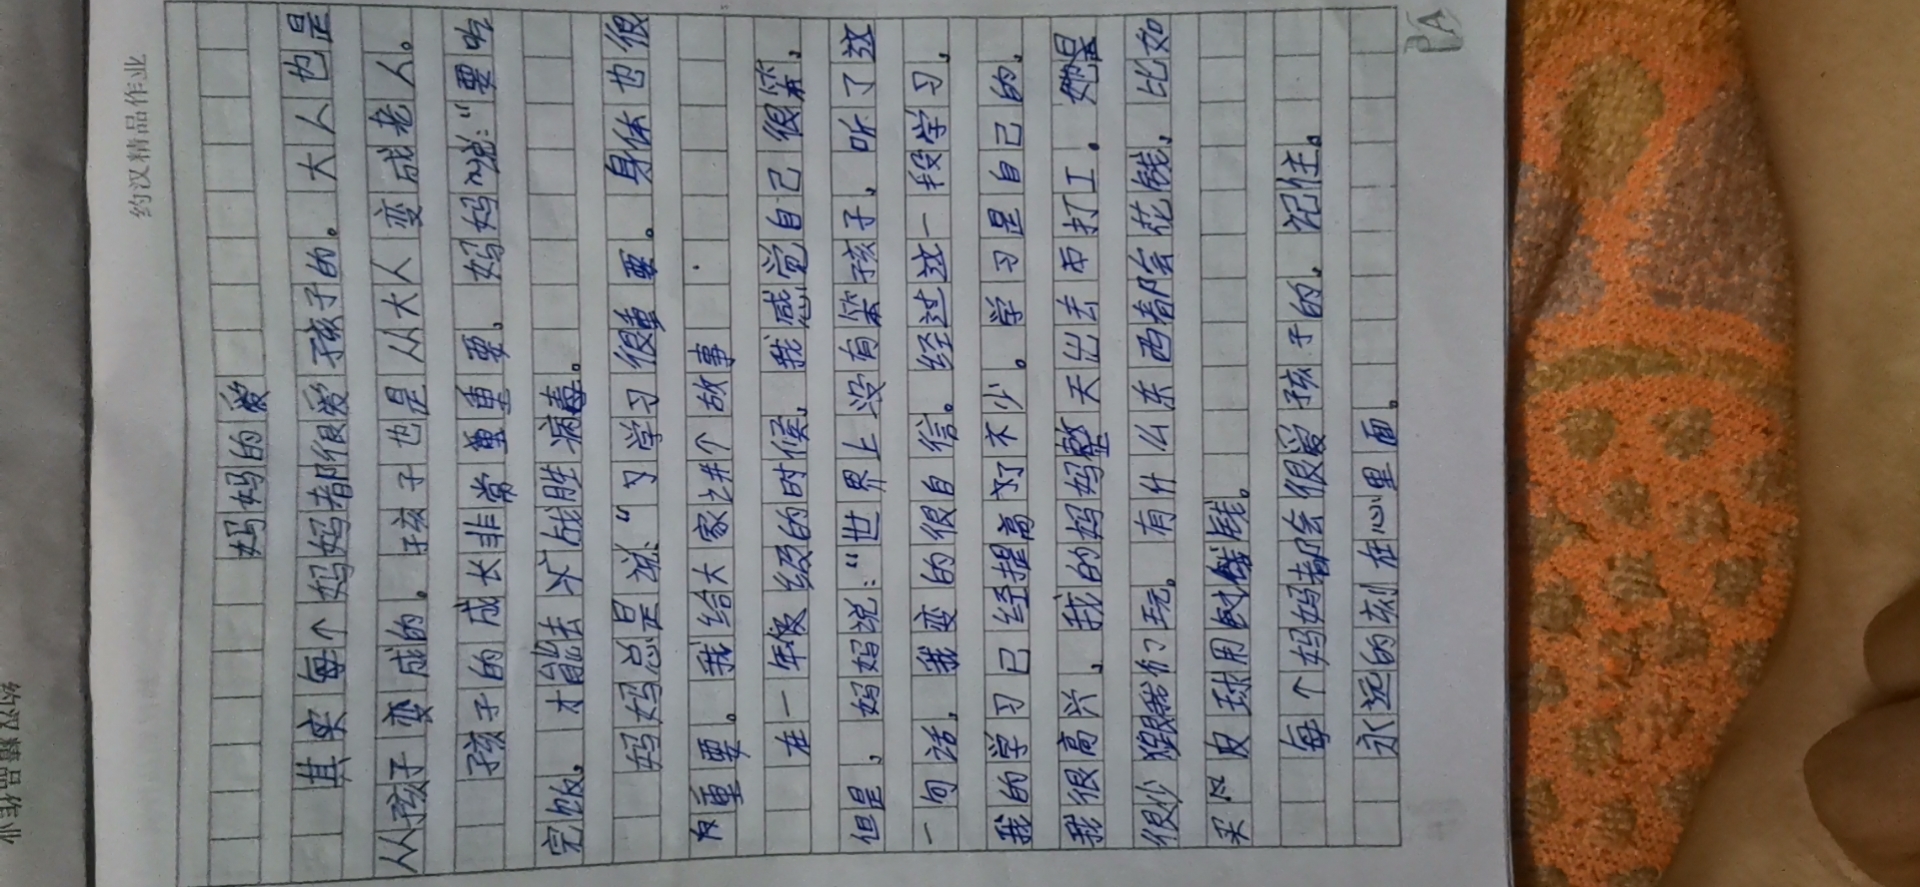 约汉精品作业
妈妈的爱
其实每个妈妈都很爱孩子的。大人也是
从孩子变成的。孩子也是从大人变成老人。
孩子的成长非常重要,妈妈说:“要吃
完饭,才能去战胜病毒。
妈妈总是说“学习很重要。身体也很
重要。我给大家讲个故事
在一年级的时候,我感觉自己很笨,
但是,妈妈说:“世界上没有笨孩子,听了这
一句话,我变的很自信。经过这一段学习,
我的学习已经提高了不少。学习是自己的,
我很高兴,我的妈妈整天出去打工。她是
很少跟我们玩。有什么东西都会花钱,比如
买皮球用钱。
每个妈妈都会很爱孩子的,记住。
永远的刻在心里面。